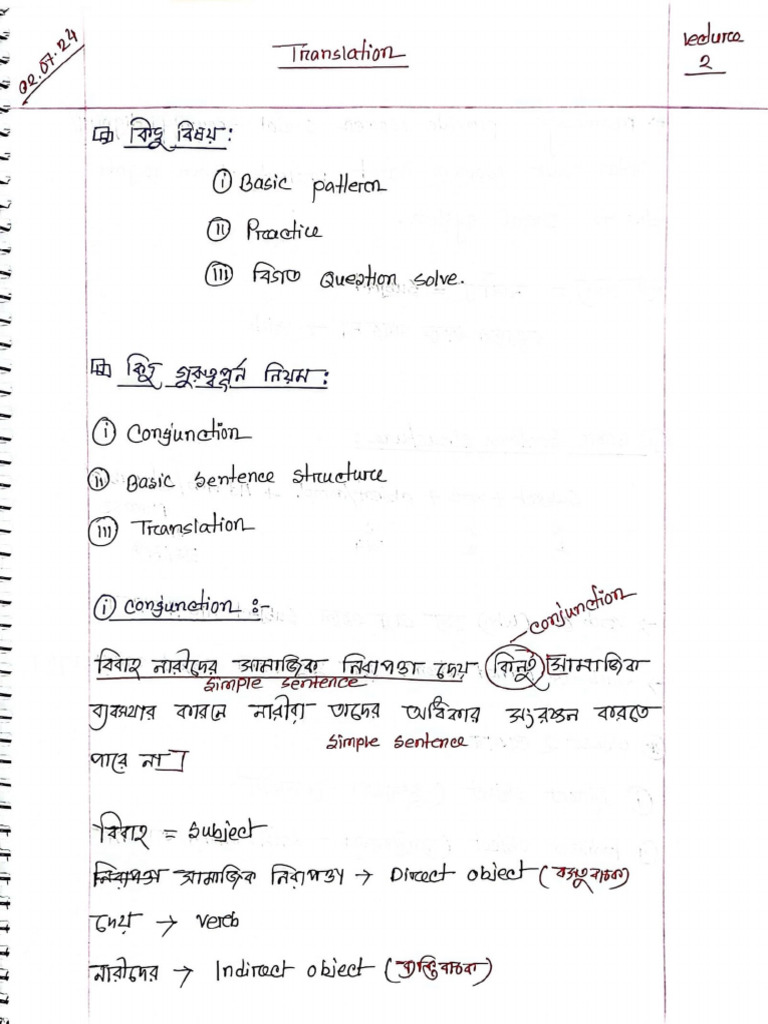 02.07.24
Translation
Lecture
2
কিছু বিষয়:
i Basic pattern
ii Practice
iii বিগত Question solve.
কিছু গুরুত্বপূর্ন নিয়ম:
i Conjunction
ii Basic sentence structure
iii Translation
i Conjunction :-
conjunction
বিবাহ নারীদের সামাজিক নিরাপত্তা দেয় কিন্তু সামাজিক
simple sentence
ব্যবস্থার কারনে নারীরা তাদের অধিকার সংরক্ষন করতে
simple sentence
পারে না
বিবাহ = Subject
নিরাপত্তা সামাজিক নিরাপত্তা → Direct object (বস্তুবাচক)
দেয় → Verb
নারীদের → Indirect object (ব্যক্তিবাচক)